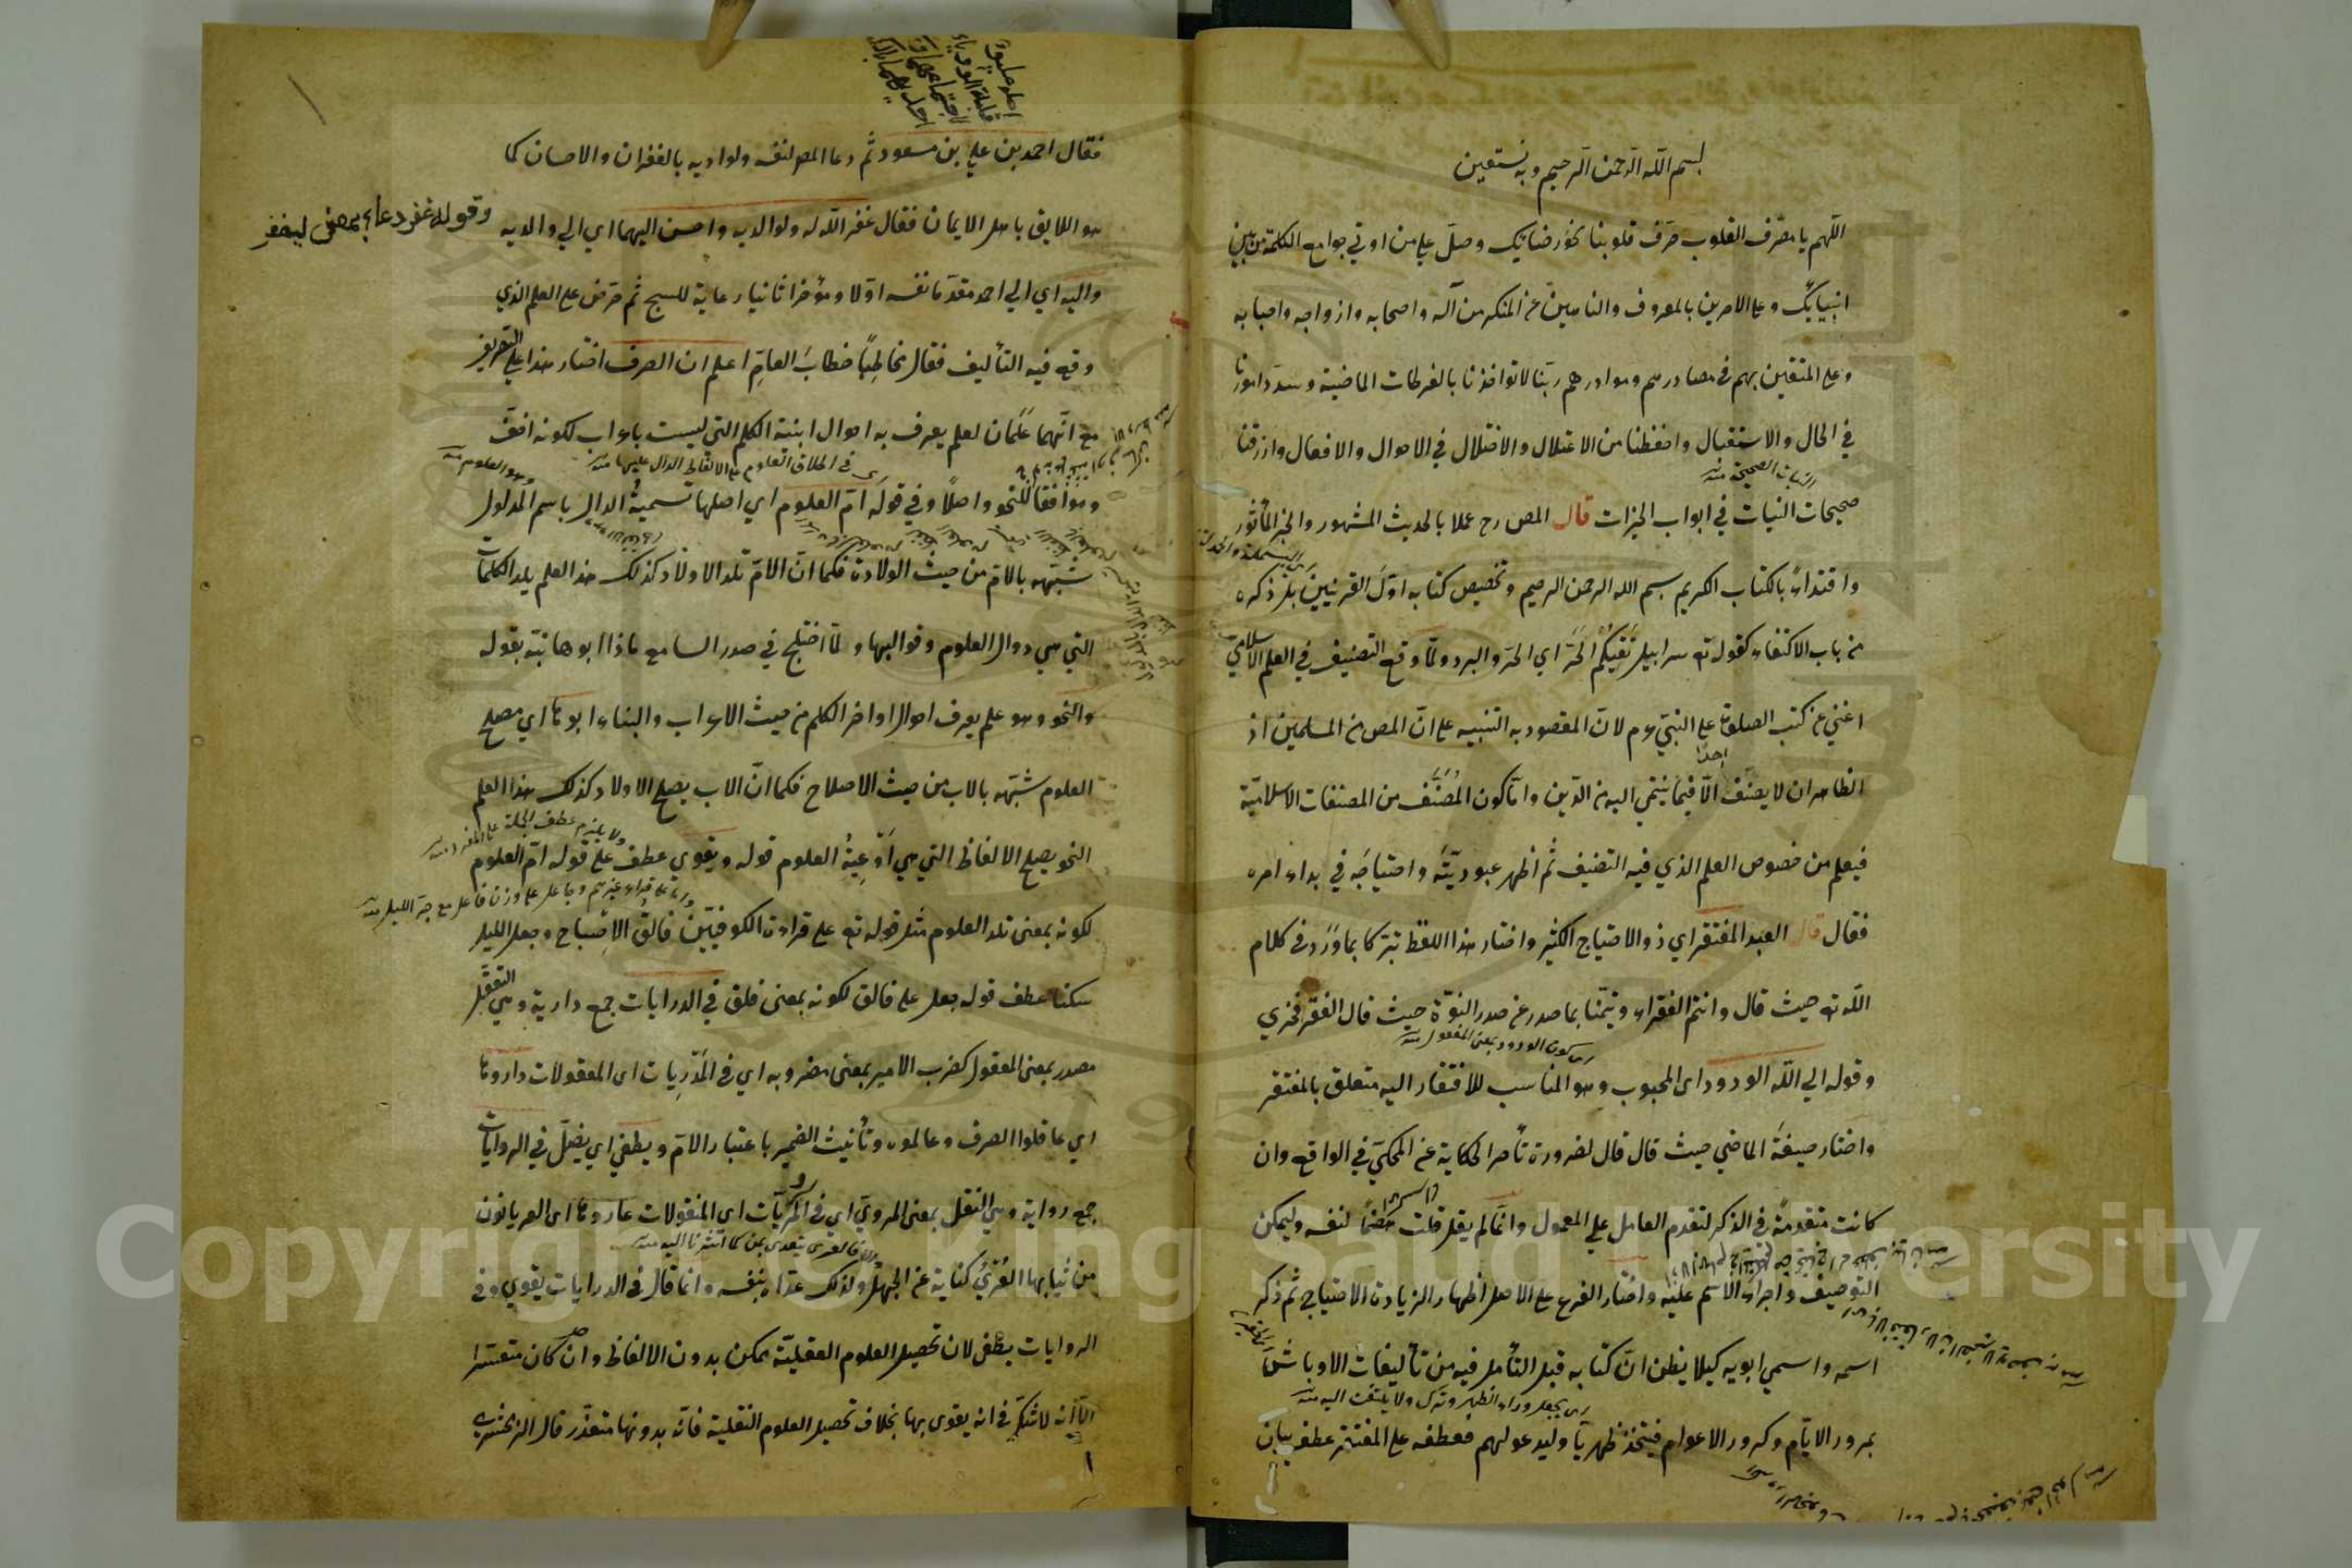 بسم الله الرحمن الرحيم وبه نستعين
اللهم يا مصرف القلوب صرف قلوبنا نحو رضائك وصل على من اوتي جوامع الكلمة من بين
انبيائك وعلى الامرين بالمعروف والناهين عن المنكر من آله واصحابه وازواجه واحبابه
وعلى المتقين بهم في مصادرهم ومواردهم ربنا لا تؤاخذنا بالفرطات الماضية وسدد امورنا
في الحال والاستقبال واحفظنا من الاعتلال والاختلال في الاحوال والافعال وارزقنا
صحيحات النيات في ابواب الخيرات قال المص رح عملا بالحديث المشهور والخبر المأثور
واقتداء بالكتاب الكريم بسم الله الرحمن الرحيم وتخصيص كتابه اول القرينين بذكره
من باب الاكتفاء كقوله تع سرابيل تقيكم الحر اي الحر والبرد ولما وقع التصنيف في العلم الاسلامي
اغني عن كتب الصلوة على النبي ءم لان المقصود به التنبيه على ان المص من المسلمين اذ
الظاهر ان لا يصنف احدا الا فيما ينتمي اليه من الدين واما كون المصنف من المصنفات الاسلامية
فيعلم من خصوص العلم الذي فيه التصنيف ثم اظهر عبوديته واحتياجه في بداء امره
فقال قال العبد المفتقر اي ذو الاحتياج الكثير واختار هذا اللفظ تبركا بما ورد في كلام
الله تع حيث قال وانتم الفقراء وتيمنا بما صدر عن صدر النبوة حيث قال الفقر فخري
وقوله الي الله الودود اى المحبوب وهو المناسب للافتقار اليه متعلق بالمفتقر
واختار صيغة الماضي حيث قال قال لضرورة تأخر الحكاية عن المحكي في الواقع وان
كانت متقدمة في الذكر لتقدم العامل علي المعمول وانما لم يقل قلت هضما لنفسه وليمكن
التوصيف واجراء الاسم عليه واختار الفرع على الاصل اظهار الزيادة الاحتياج ثم ذكر
اسمه واسمي ابويه كيلا يظن ان كتابه قبل التأمل فيه من تأليفات الاوباش
بمرور الايام وكرور الاعوام فيتخذ ظهريا وليدعو لهم فعطف على المفتقر عطف بيان
فقال احمد بن علي بن مسعود ثم دعا المص لنفسه ولوالديه بالغفران والاحسان كما
هو اللايق باهل الايمان فقال غفر الله له ولوالديه واحسن اليهما اي الي والديه
وقوله غفر دعاء بمعنى ليغفر
واليه اي الي احمد مقدما نفسه اولا ومؤخرا ثانيا رعاية للسجع ثم حرض على العلم الذي
وقع فيه التأليف فقال مخاطبا خطاب العام اعلم ان الصرف اختار هذا على التصريف
مع انهما علمان لعلم يعرف به احوال ابنية الكلم التي ليست باعراب لكونه اخف
وموافقا للنحو واصلا وفي قوله ام العلوم اي اصلها تسمية الدال باسم المدلول
شبهه بالام من حيث الولادة فكما ان الام تلد الاولاد كذلك هذا العلم يلد الكلمات
التي هي دوال العلوم وقوالبها ولما اختلج في صدر السامع ماذا ابوها نبه بقوله
والنحو وهو علم يعرف احوال اواخر الكلم من حيث الاعراب والبناء ابوها اي مصلح
العلوم شبهه بالاب من حيث الاصلاح فكما ان الاب يصلح الاولاد كذلك هذا العلم
النحو يصلح الالفاظ التي هي اوعية العلوم قوله ويقوي عطف على قوله ام العلوم
لكونه بمعنى تلد العلوم مثل قوله تع على قراءة الكوفيين فالق الاصباح وجعل الليل
سكنا عطف قوله جعل على فالق لكونه بمعنى فلق في الدرايات جمع دراية وهي التعقل
مصدر بمعنى المعقول كضرب الامير بمعنى مضروبه اي في المدريات اى المعقولات داروها
اي عاقلوا الصرف وعالموه وتأنيث الضمير باعتبار الام ويطغي اي يضل في الروايات
جمع رواية وهي النقل بمعنى المروي اي في المرويات اى المنقولات عاروها اى العريانون
من ثيابها العري كناية عن الجهل ولذلك عداه بنفسه وانما قال في الدرايات يقوي وفي
الروايات يطغى لان تحصيل العلوم العقلية ممكن بدون الالفاظ وان كان متعسرا
الا انه لا شك في انه يقوى بها بخلاف تحصيل العلوم النقلية فانه بدونها متعذر قال الزمخشري
Copyright © King Saud University